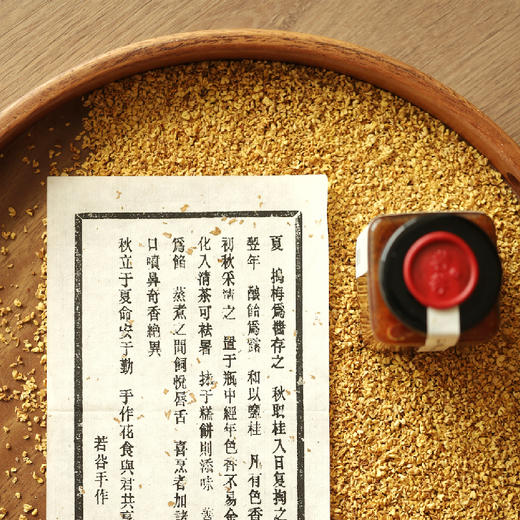 夏 搗梅爲醬存之 秋取桂入日复掬之
翌年 釀飴爲露 和以鹽桂 凡有色香
初秋采清之 置于瓶中經年色香不易
化入清茶可袪暑 抹于糕餅則添味
爲餡 蒸煮之間飼悅唇舌 喜烹者加諸
口噴鼻奇香絶異
秋立于夏命安于勤 手作花食與君共
若谷手作